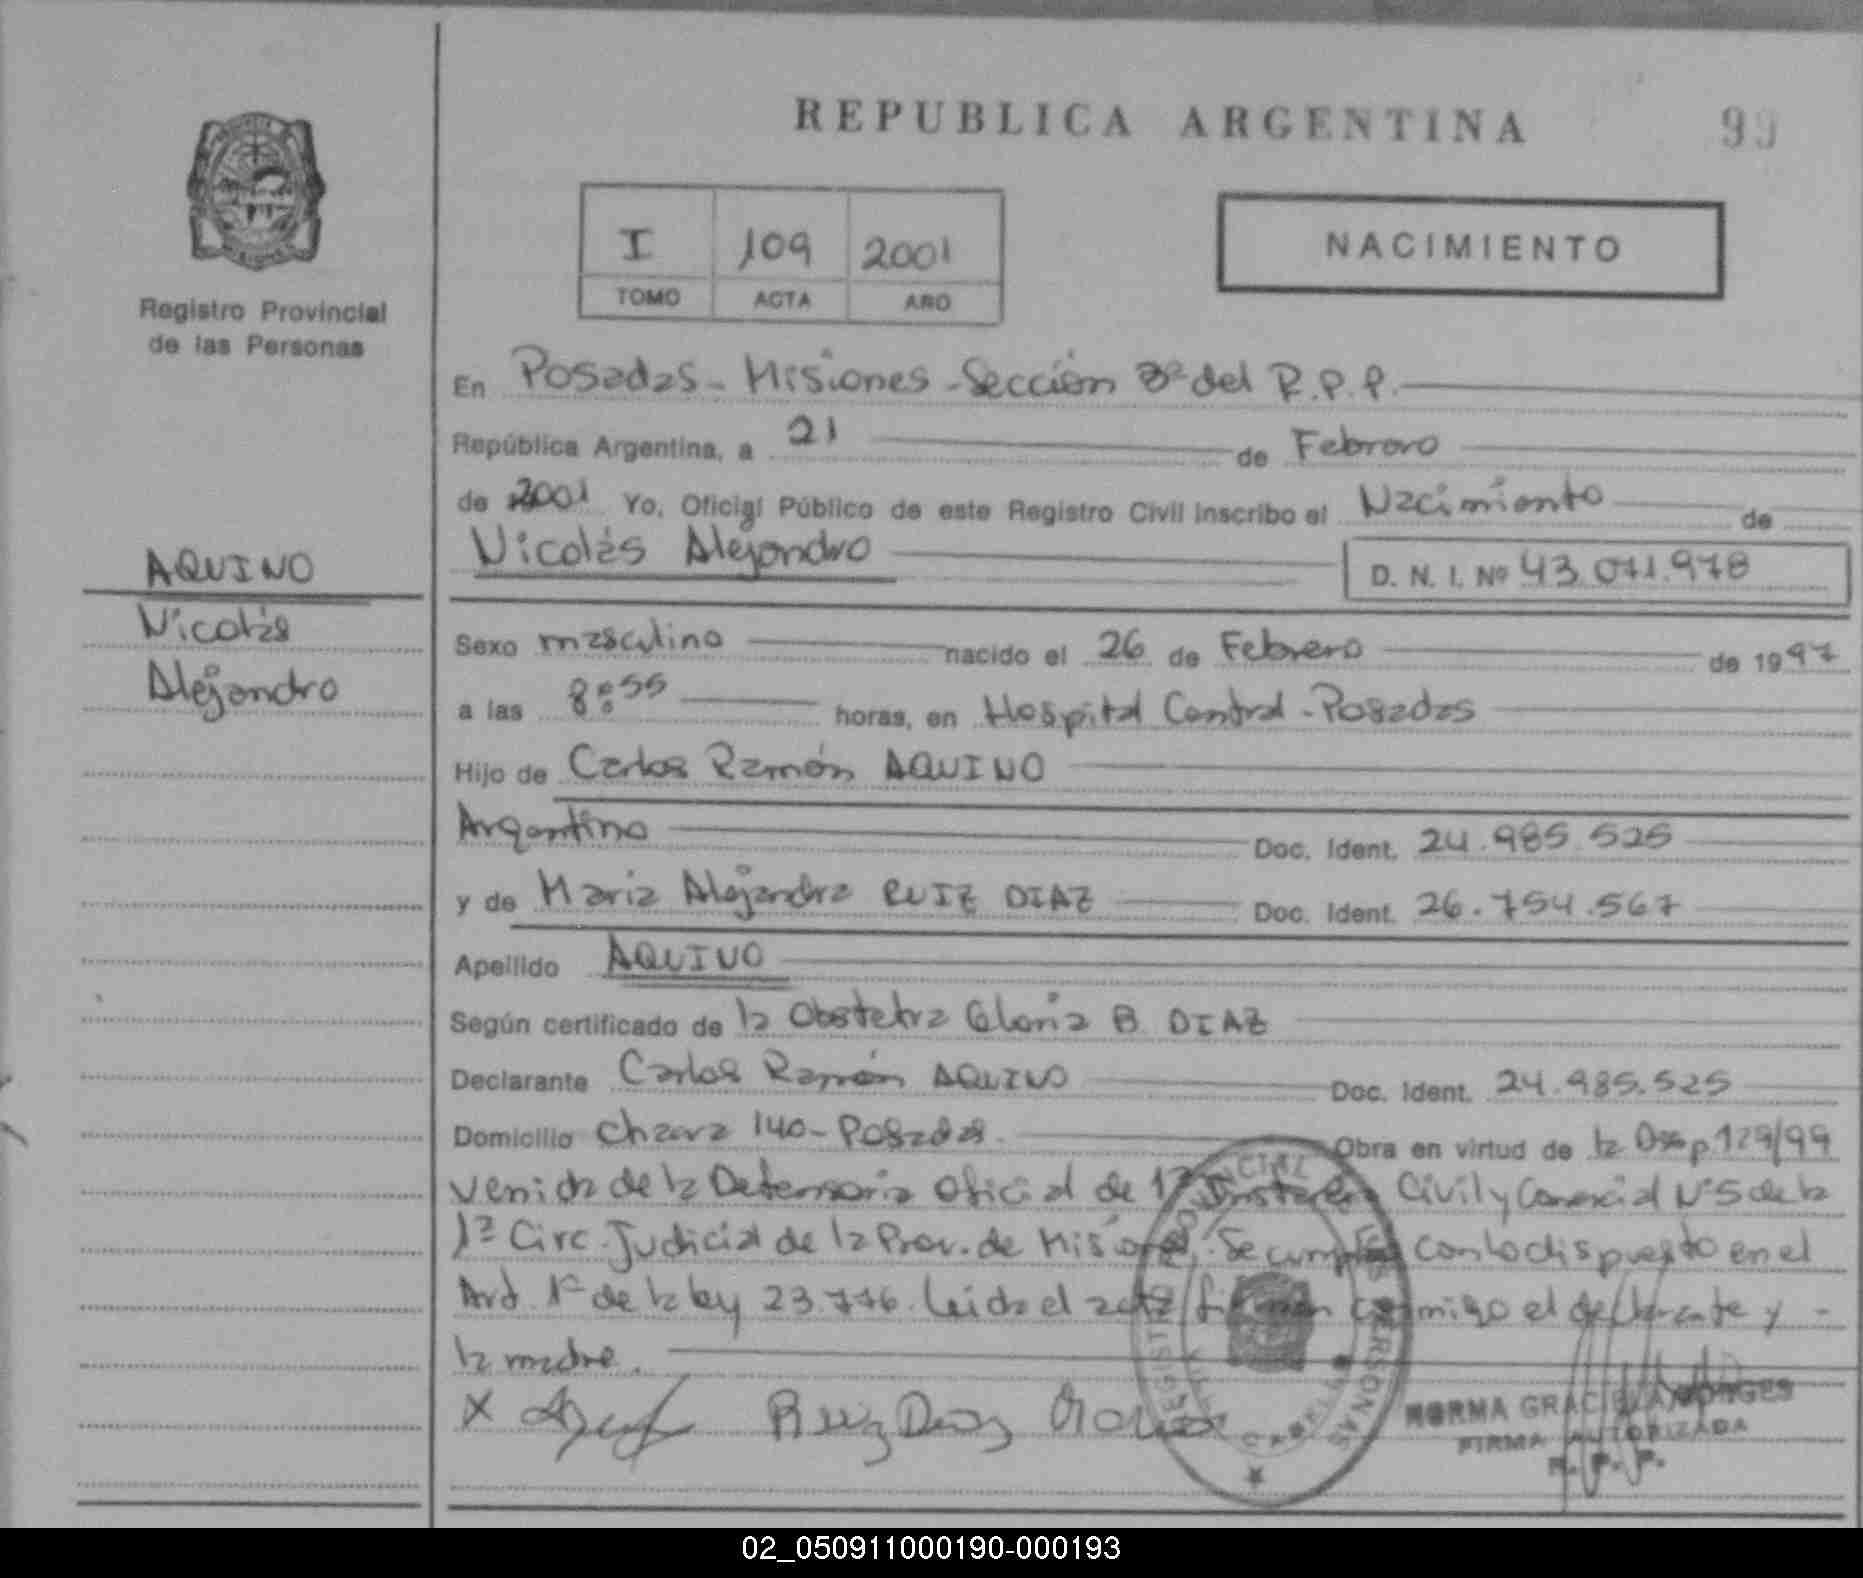 REPUBLICA ARGENTINA
99
I 109 2001
TOMO ACTA AÑO
NACIMIENTO
Registro Provincial
de las Personas
En Posadas - Misiones - Sección 3ª del R.P.P.
República Argentina, a 21 de Febrero
de 2001 Yo, Oficial Público de este Registro Civil inscribo el Nacimiento de
Nicolás Alejandro
D. N. I. Nº 43.071.978
AQUINO
Nicolás
Alejandro
Sexo masculino nacido el 26 de Febrero de 1997
a las 8:55 horas, en Hospital Central - Posadas
Hijo de Carlos Ramón AQUINO
Argentino Doc. Ident. 24.985.525
y de Maria Alejandra RUIZ DIAZ Doc. Ident. 26.754.567
Apellido AQUINO
Según certificado de la Obstetra Gloria B. DIAZ
Declarante Carlos Ramón AQUINO Doc. Ident. 24.985.525
Domicilio Chacra 140 - Posadas. Obra en virtud de la Disp. 129/99
venida de la Defensoria Oficial de 1ª Instancia Civil y Comercial Nº 5 de la
1ª Circ. Judicial de la Prov. de Misiones. Se cumple con lo dispuesto en el
Art. 1º de la ley 23.776. Leida el acta firman conmigo el declarante y -
la madre.
X Ruiz Diaz Maria
REGISTRO PROVINCIAL DE LAS PERSONAS
NORMA GRACIELA BORGES
FIRMA AUTORIZADA
R. P. P.
02_050911000190-000193